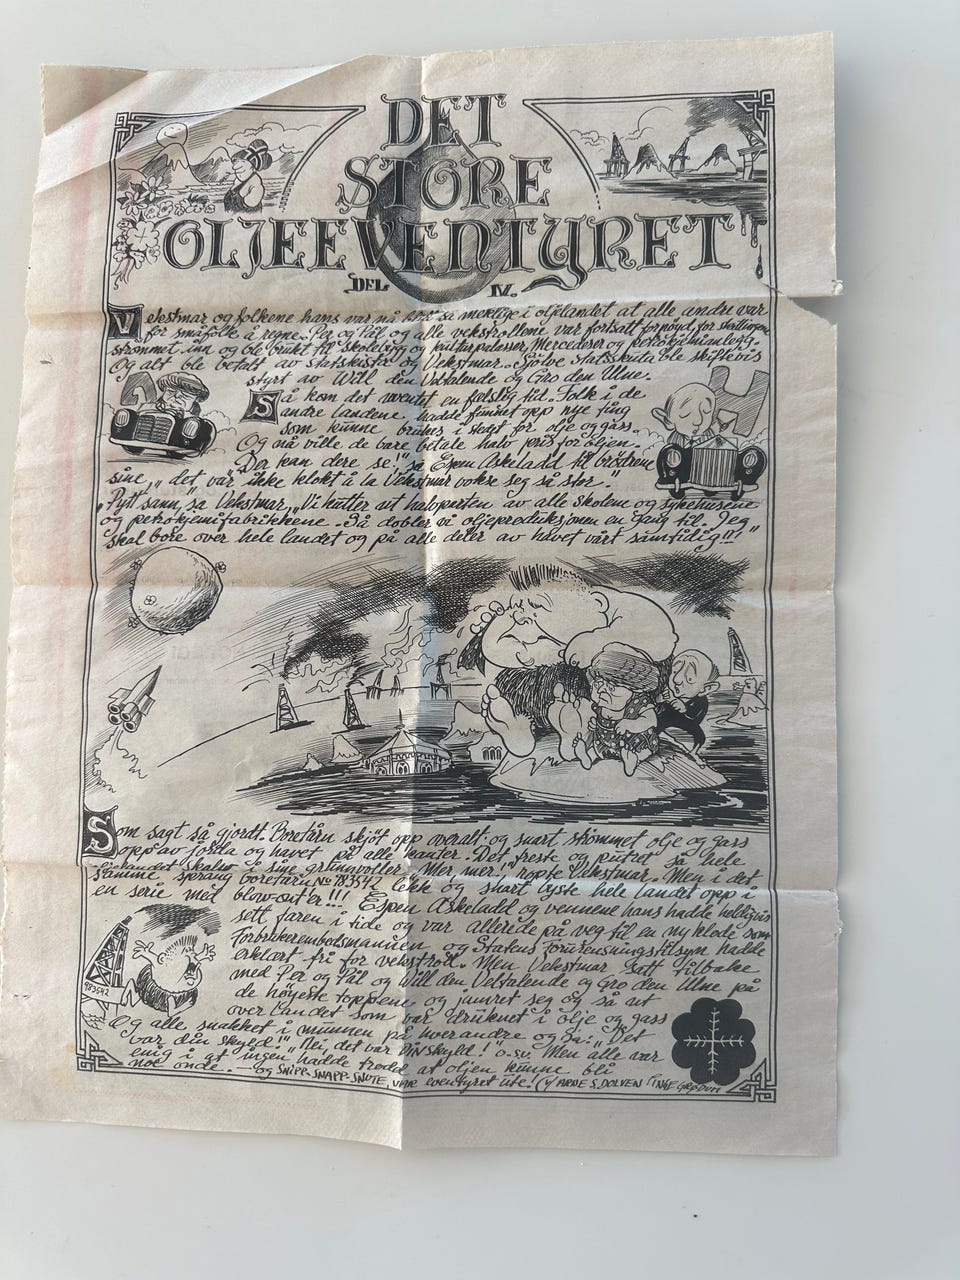 DET
STORE
OLJEEVENTYRET
DEL IV.
Vekstmar og folkene hans var nå blitt så mektige i oljelandet at alle andre var
for småfolk å regne. Per og Pål og alle vekstrollene var fortsatt fornøyd, for skillingen
strømmet inn og ble brukt til skolebygg og kulturpalasser, Mercedeser og petrokjemianlegg.
Og alt ble betalt av statskista og Vekstmar. Sjølve Statsskuta ble skiftevis
styrt av Will den Veltalende og Gro den Ulne.
Så kom det uventet en fælslig tid. Folk i de
andre landene hadde funnet opp nye ting
som kunne brukes i stedt for olje og gass.
Og nå ville de bare betale halv pris for oljen.
"Der kan dere se", sa Espen Askeladd til brødrene
sine, "det var ikke klokt å la Vekstmar vokse seg så stor."
"Pytt sann," sa Vekstmar, "Vi kutter ut halvparten av alle skolene og sykehusene
og petrokjemifabrikkene. Så dobler vi oljeproduksjonen en gang til. Jeg
skal bore over hele landet og på alle deler av havet vårt samtidig!!!"
Som sagt så gjordt. Boretårn skjøt opp overalt og snart strømmet olje og gass
opp av jorda og havet på alle kanter. Det freste og putret så hele
landet skalv i sine grunnvoller. "Mer, mer!" ropte Vekstmar. Men i det
samme sprang boretårn No 783542 lekk og snart lyste hele landet opp i
en serie med blow-out'er!!! Espen Askeladd og vennene hans hadde heldigvis
sett faren i tide og var allerede på veg til en ny klode som
Forbrukerombudsmannen og Statens forurensningstilsyn hadde
erklært fri for vekstroll. Men Vekstmar satt tilbake
med Per og Pål og Will den Veltalende og Gro den Ulne på
de høyeste toppene og jamret seg og så ut
over landet som var druknet i olje og gass
Og alle snakket i munnen på hverandre og sa: "Det
var din skyld!" "Nei, det var DIN skyld!" o.sv. Men alle var
enig i at ingen hadde trodd at oljen kunne bli
noe onde. — og SNIPP-SNAPP-SNUTE, var eventyret ute!
ARNE S. DOLVEN INGE GRØDUM
983542